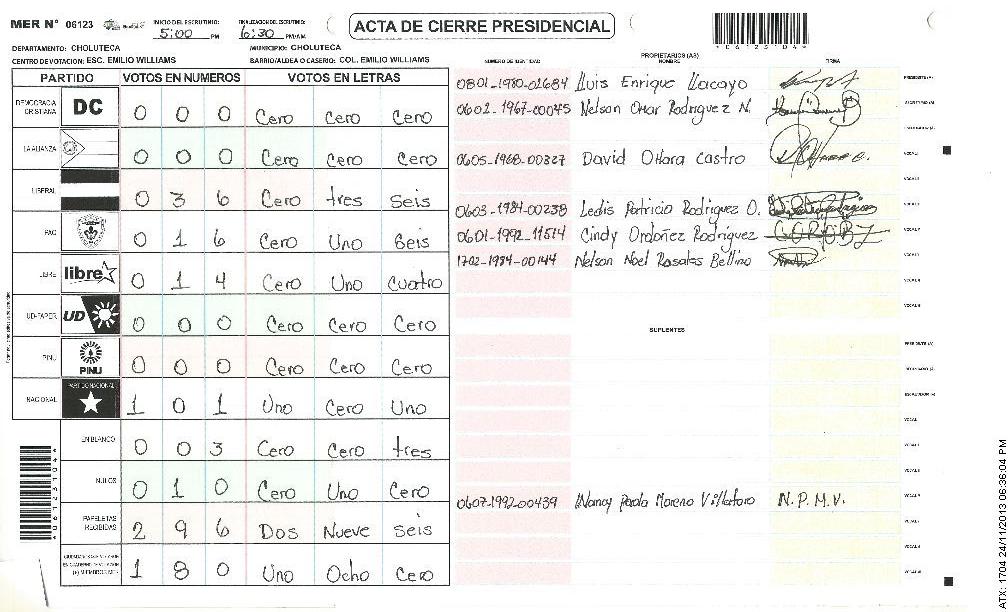 MER Nº 06123 INICIO DEL ESCRUTINIO: 5:00 PM FINALIZACION DEL ESCRUTINIO: 6:30 PM/AM ACTA DE CIERRE PRESIDENCIAL
DEPARTAMENTO: CHOLUTECA MUNICIPIO: CHOLUTECA
CENTRO DE VOTACION: ESC. EMILIO WILLIAMS BARRIO/ALDEA O CASERIO: COL. EMILIO WILLIAMS
NUMERO DE IDENTIDAD PROPIETARIOS (AS) NOMBRE FIRMA
PARTIDO VOTOS EN NUMEROS VOTOS EN LETRAS
DEMOCRACIA CRISTIANA DC 0 0 0 Cero Cero Cero
LA ALIANZA 0 0 0 Cero Cero Cero
LIBERAL 0 3 6 Cero tres Seis
PAC 0 1 6 Cero Uno Seis
LIBRE libre 0 1 4 Cero Uno Cuatro
UD-FAPER UD 0 0 0 Cero Cero Cero
PINU PINU 0 0 0 Cero Cero Cero
NACIONAL PARTIDO NACIONAL 1 0 1 Uno Cero Uno
EN BLANCO 0 0 3 Cero Cero tres
NULOS 0 1 0 Cero Uno Cero
PAPELETAS RECIBIDAS 2 9 6 Dos Nueve Seis
1 8 0 Uno Ocho Cero
0801-1980-02684 Lluis Enrique Llacayo PRESIDENTE (A)
0602-1967-00045 Nelson Omar Rodriguez N. SECRETARIO (A)
0605-1968-00327 David OHara Castro VOCAL I
0603-1984-00238 Ledis Patricio Rodriguez O.
0601-1992-11514 Cindy Ordoñez Rodríguez
1702-1984-00144 Nelson Noel Rosales Bellino
SUPLENTES
PRESIDENTE (A)
SECRETARIO (A)
ESCRUTADOR (A)
0607-1992-00439 Nancy Paola Moreno Villatoro N.P.M.V.
ATX: 1704 24/11/2013 06:36:04 PM